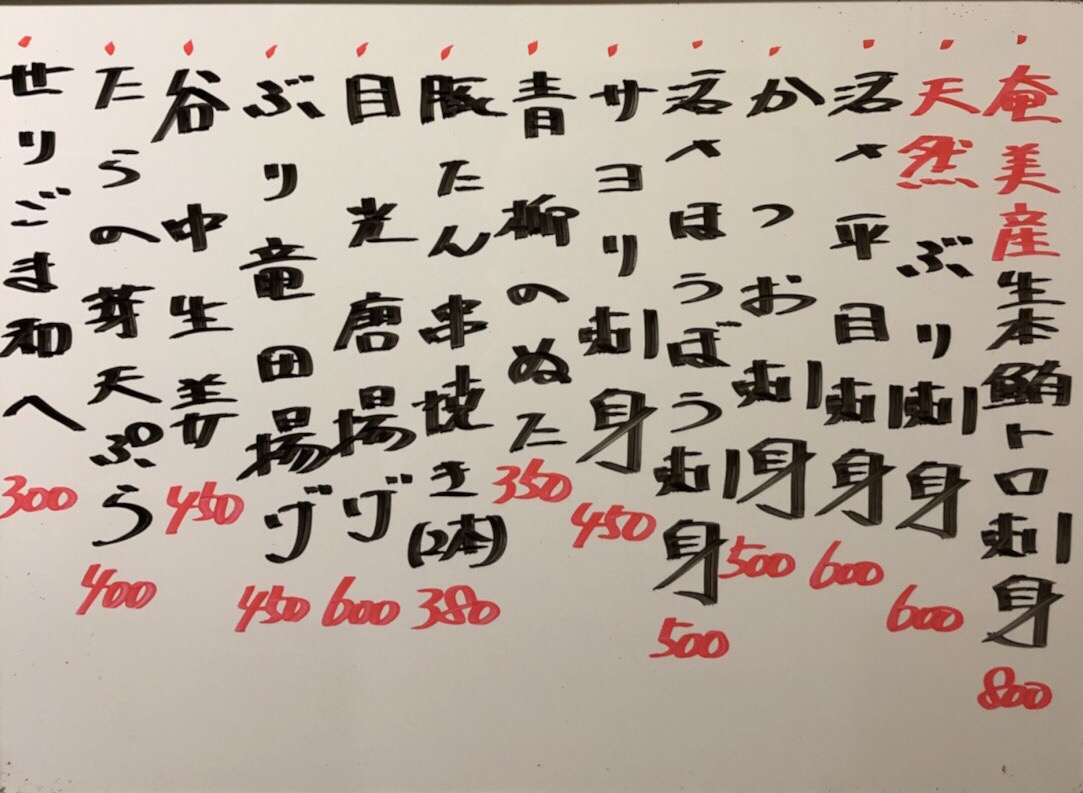 奄美産生本鮪トロ刺身 800
天然ぶり刺身 600
活〆平目刺身 600
かつお刺身 500
活〆ほうぼう刺身 500
サヨリ刺身 450
青柳のぬた 350
豚たん串焼き(2本) 380
目光唐揚げ 600
ぶり竜田揚げ 450
谷中生姜 450
たらの芽天ぷら 400
せりごま和へ 300